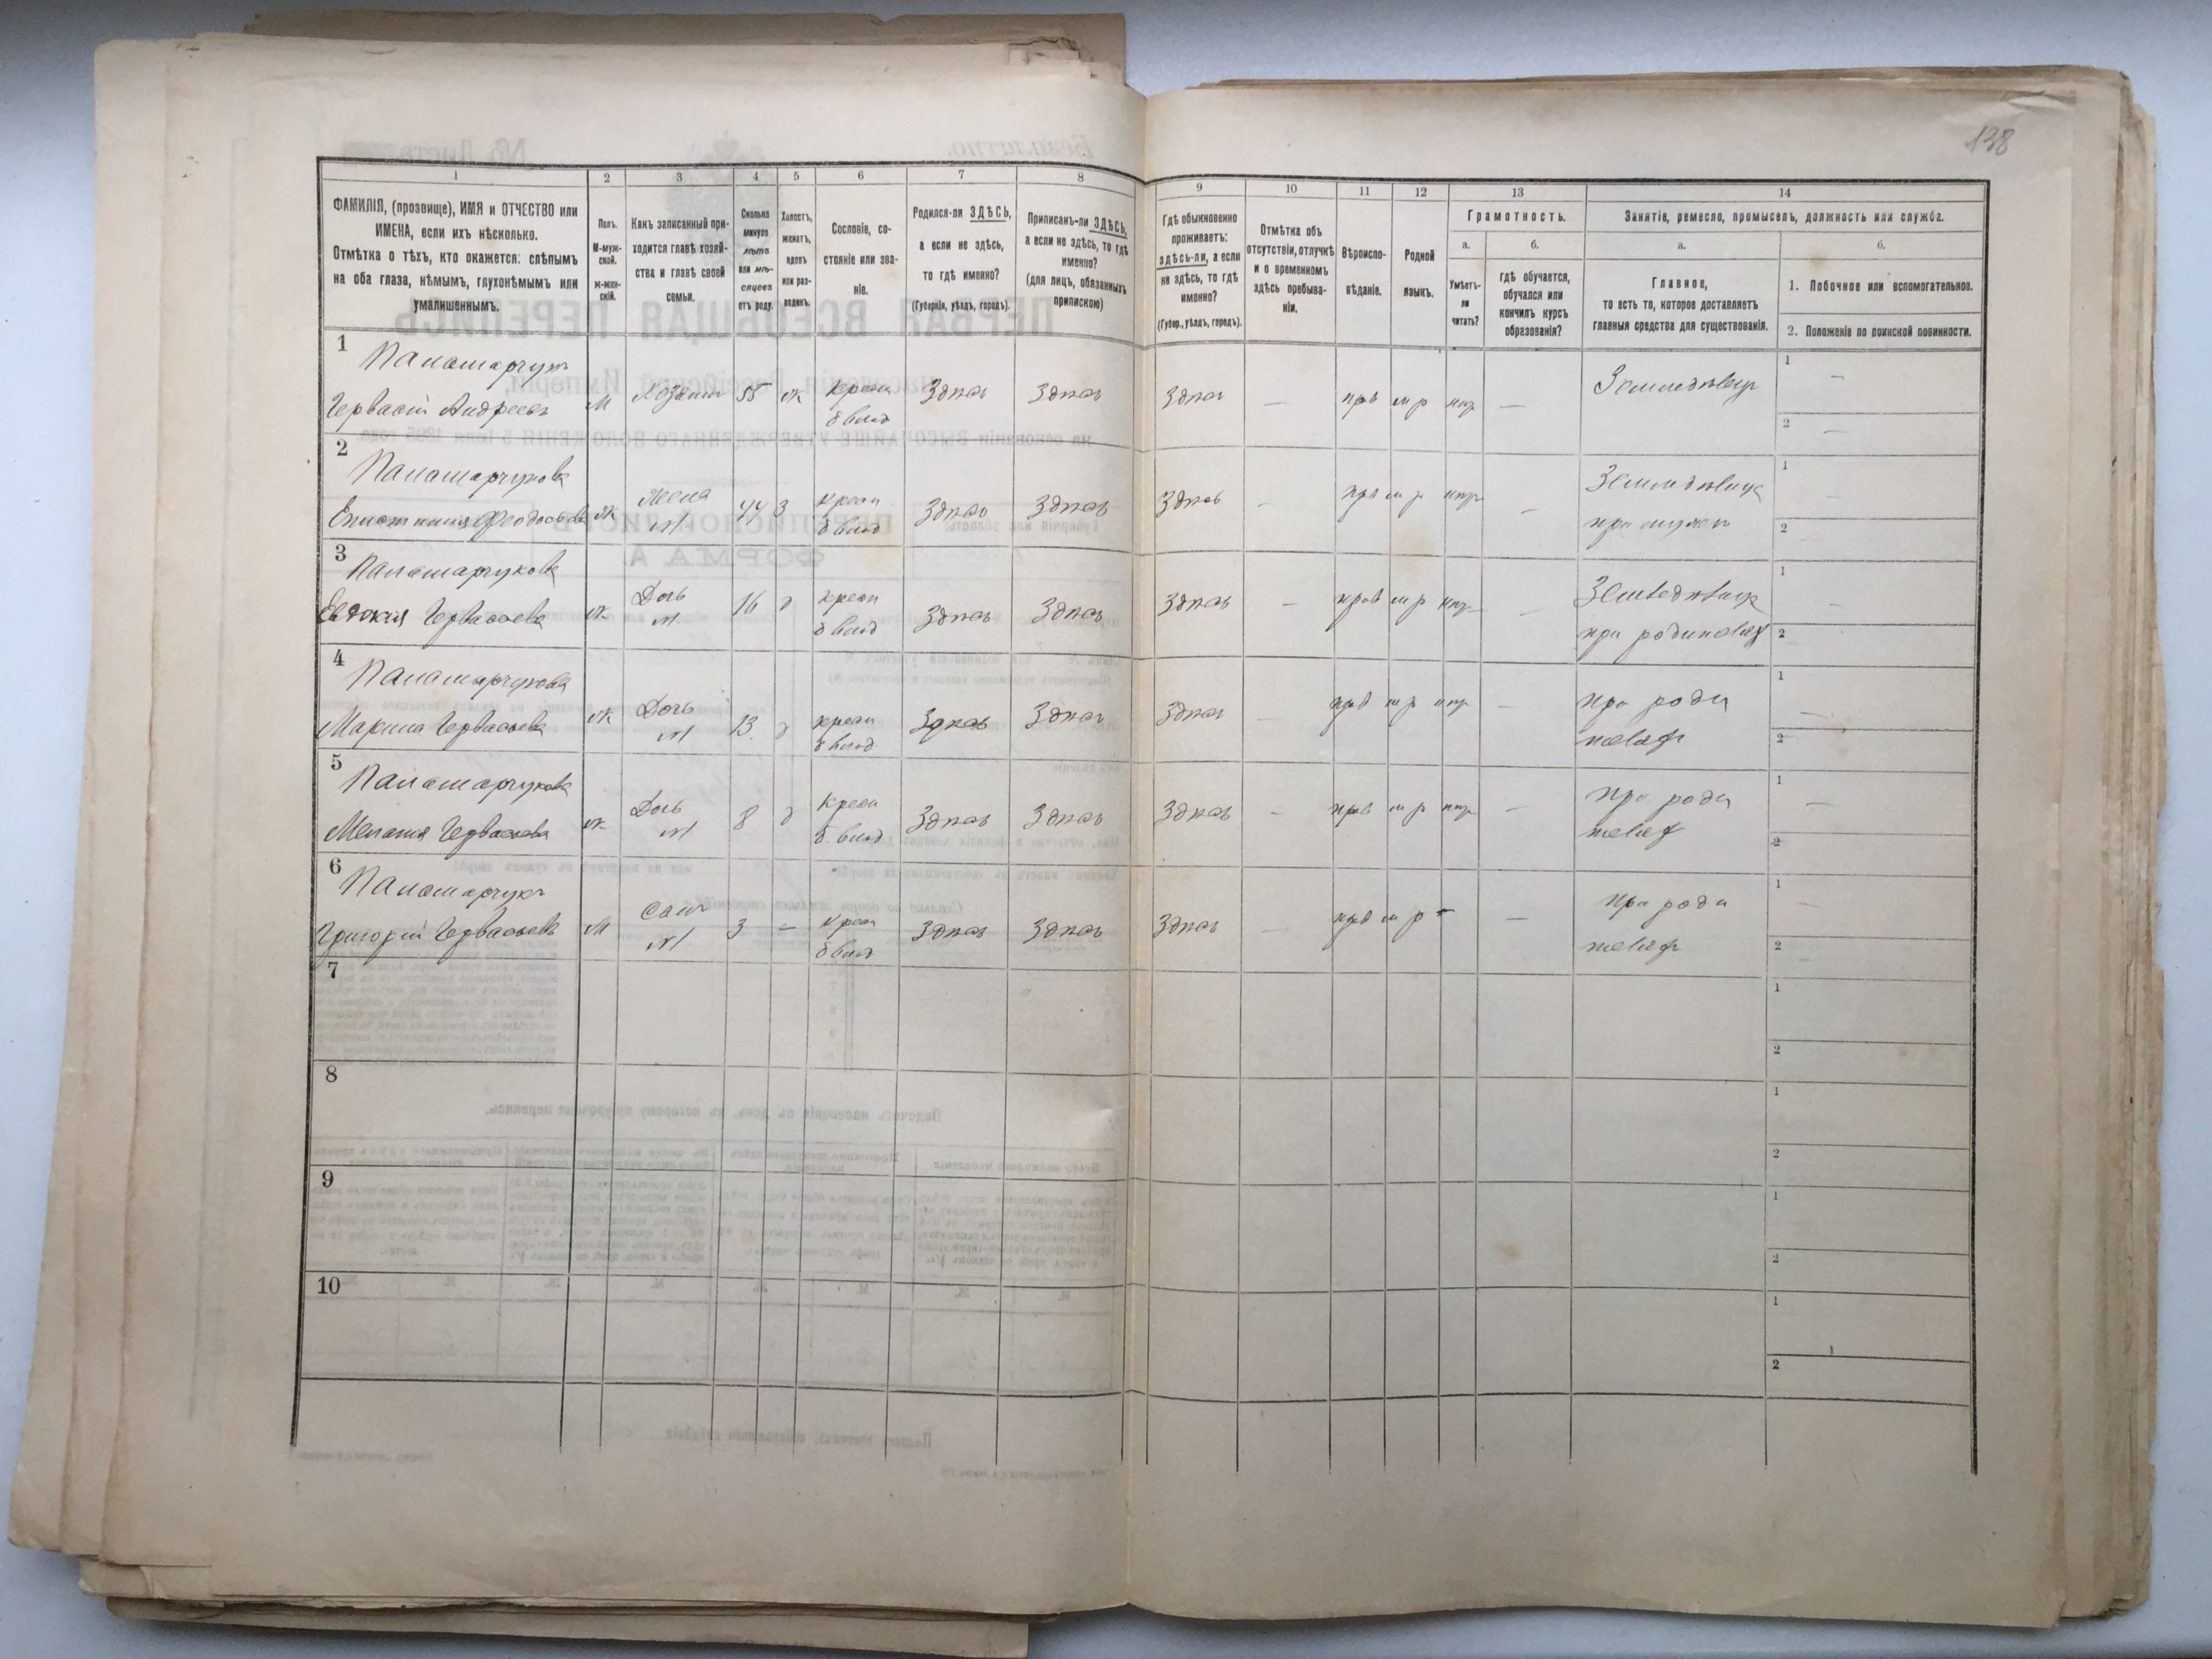 138
1 2 3 4 5 6 7 8 9 10 11 12 13 14
ФАМИЛІЯ, (прозвище), ИМЯ и ОТЧЕСТВО или
ИМЕНА, если ихъ нѣсколько.
Отмѣтка о тѣхъ, кто окажется: слѣпымъ
на оба глаза, нѣмымъ, глухонѣмымъ или
умалишеннымъ.
Полъ.
М-муж-
ской.
Ж-жен-
скій.
Какъ записанный при-
ходится главѣ хозяй-
ства и главѣ своей
семьи.
Сколько
минуло
лѣтъ
или мѣ-
сяцевъ
отъ роду.
Холостъ,
женатъ,
вдовъ
или раз-
веденъ.
Сословіе, со-
стояніе или зва-
ніе.
Родился-ли ЗДѢСЬ,
а если не здѣсь,
то гдѣ именно?
(Губернія, уѣздъ, городъ).
Приписанъ-ли ЗДѢСЬ,
а если не здѣсь, то гдѣ
именно?
(для лицъ, обязанныхъ
припискою)
Гдѣ обыкновенно
проживаетъ:
здѣсь-ли, а если
не здѣсь, то гдѣ
именно?
(Губер., уѣздъ, городъ).
Отмѣтка объ
отсутствіи, отлучкѣ
и о временномъ
здѣсь пребыва-
ніи.
Вѣроиспо-
вѣданіе.
Родной
языкъ.
Грамотность.
а.
Умѣетъ-
ли
читать?
б.
гдѣ обучается,
обучался или
кончилъ курсъ
образованія?
Занятіе, ремесло, промыселъ, должность или служба.
а.
Главное,
то есть то, которое доставляетъ
главныя средства для существованія.
б.
1. Побочное или вспомогательное.
2. Положеніе по воинской повинности.
1
Паламарчукъ
Гервасій Андреевъ М Хозяинъ 55 ж Крест Здѣсь Здѣсь Здѣсь — прв м р нѣт — Земледѣлецъ 1 —
б влад 2 —
2
Паламарчукова
Феодосьева ж Жена 44 З крест Здѣсь Здѣсь Здѣсь — прв м р нѣт — Земледѣлица 1
М б влад при мужѣ 2
3
Паламарчукова
Евдокия Гервасьева ж Дочь 16 д крест Здѣсь Здѣсь Здѣсь — прав м р нѣт — Земледѣлица 1
М б влад при родителях 2
4
Паламарчукова
Марина Гервасьева ж Дочь 13 д крест Здѣсь Здѣсь Здѣсь — прв м р нѣт — при роди 1 —
М б влад телях 2
5
Паламарчукова
Мелания Гервасьева ж Дочь 8 д крест Здѣсь Здѣсь Здѣсь — прав м р нѣт — при роди 1 —
М б. влад телях 2
6
Паламарчукъ
Григорій Гервасьевъ М Сынъ 3 — крест Здѣсь Здѣсь Здѣсь — прв м р — — при роди 1 —
М б влад телях 2
7 1
2
8 1
2
9 1
2
10 1
2